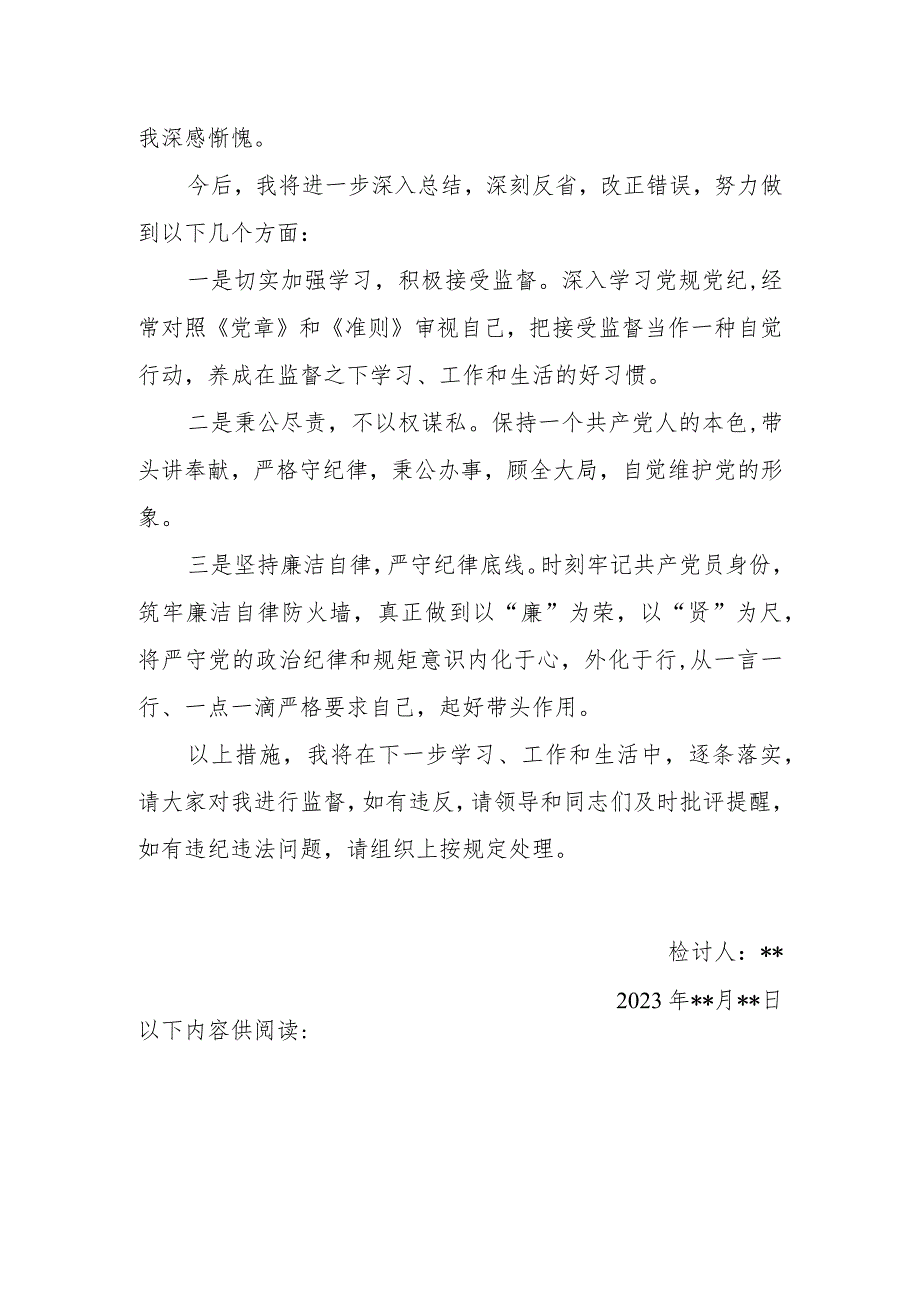 我深感惭愧。
今后，我将进一步深入总结，深刻反省，改正错误，努力做
到以下几个方面：
一是切实加强学习，积极接受监督。深入学习党规党纪,经
常对照《党章》和《准则》审视自己，把接受监督当作一种自觉
行动，养成在监督之下学习、工作和生活的好习惯。
二是秉公尽责，不以权谋私。保持一个共产党人的本色,带
头讲奉献，严格守纪律，秉公办事，顾全大局，自觉维护党的形
象。
三是坚持廉洁自律,严守纪律底线。时刻牢记共产党员身份，
筑牢廉洁自律防火墙，真正做到以“廉”为荣，以“贤”为尺，
将严守党的政治纪律和规矩意识内化于心，外化于行,从一言一
行、一点一滴严格要求自己，起好带头作用。
以上措施，我将在下一步学习、工作和生活中，逐条落实，
请大家对我进行监督,如有违反,请领导和同志们及时批评提醒，
如有违纪违法问题，请组织上按规定处理。
检讨人：**
2023年**月**日
以下内容供阅读: